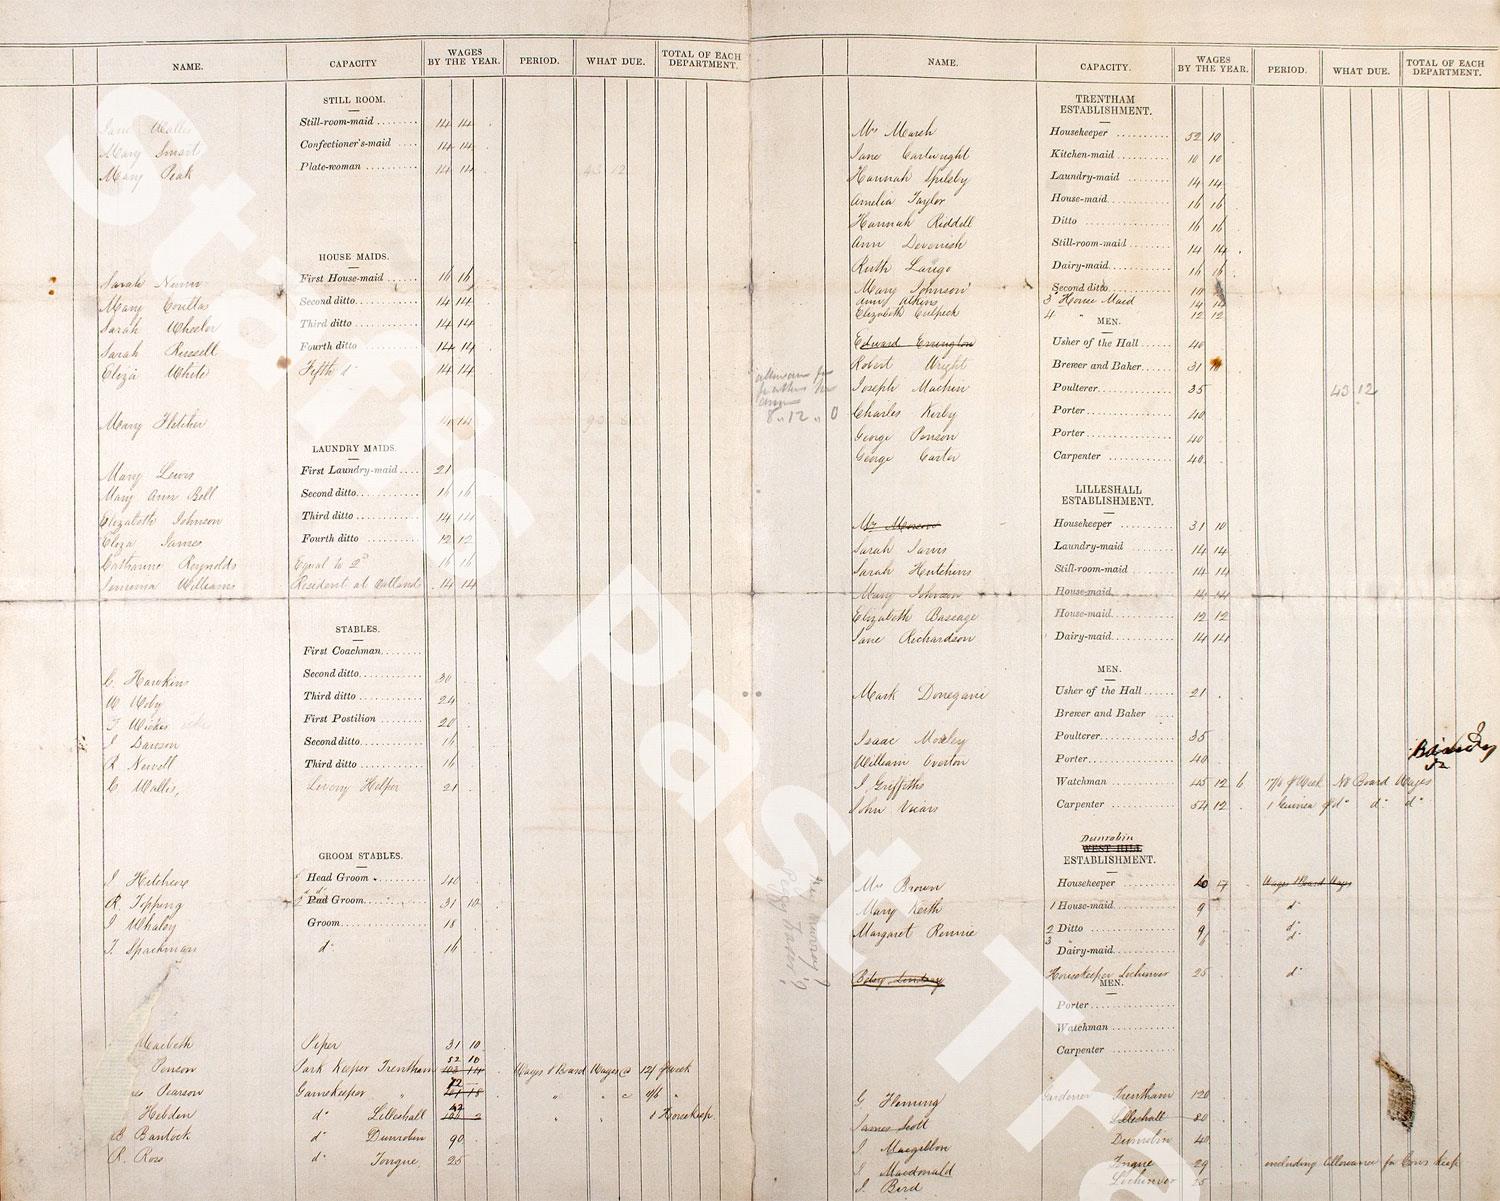 NAME. CAPACITY WAGES BY THE YEAR. PERIOD. WHAT DUE. TOTAL OF EACH DEPARTMENT.
STILL ROOM.
Jane Wallis Still-room-maid 14 14
Mary Smart Confectioner's-maid 14 14
Mary Peak Plate-woman 14 14 43 12
HOUSE MAIDS.
Sarah Nunn First House-maid 16 16
Mary Coultas Second ditto 14 14
Sarah Wheeler Third ditto 14 14
Sarah Russell Fourth ditto 14 14
Eliza White Fifth d° 14 14
Mary Fletcher 14 14
LAUNDRY MAIDS.
Mary Lewis First Laundry-maid 21
Mary Ann Bell Second ditto 16 16
Elizabeth Johnson Third ditto 14 14
Eliza James Fourth ditto 12 12
Catharine Reynolds Equal to 2d 16 16
Jemima Williams Resident at 14 14
STABLES.
First Coachman
C. Hawkins Second ditto 30
W Third ditto 24
T Wickes First Postilion 20
J Dawson Second ditto 16
R Newell Third ditto 16
C Wallis, Livery Helper 21
GROOM STABLES.
J Hitchcox Head Groom 40
R. Topping Pad Groom 31 10
J Whaley Groom 18
T. Spackman d° 16
Macbeth Piper 31 10
52 10
Penson Park Keeper Trentham Wages & Board Wages @ 12/ week
72
Pearson Gamekeeper "
Hebden d° Lilleshall 1 Horse Keep
B Bantock d° Dunrobin 90
R. Ross d° Tongue 25
NAME. CAPACITY. WAGES BY THE YEAR. PERIOD. WHAT DUE. TOTAL OF EACH DEPARTMENT.
TRENTHAM
ESTABLISHMENT.
Mrs Marsh Housekeeper 52 10
Jane Cartwright Kitchen-maid 10 10
Hannah Spilsby Laundry-maid 14 14
Amelia Taylor House-maid 16 16
Hannah Riddell Ditto 16 16
Ann Devonish Still-room-maid 14 14
Ruth Dairy-maid 16 16
Mary Johnson Second ditto 10
Ann Atkins 3 House Maid 14 14
Elizabeth Culpeck 4 " 12 12
MEN.
Edward Errington Usher of the Hall 40
Robert Wright Brewer and Baker 31
Joseph Machin Poulterer 35 43 12
8 " 12 " 0
Charles Kirby Porter 40
George Penson Porter 40
George Carter Carpenter 40
LILLESHALL
ESTABLISHMENT.
Housekeeper 31 10
Sarah Jarvis Laundry-maid 14 14
Sarah Hutchins Still-room-maid 14 14
Mary Johnson House-maid 14 14
Elizabeth Baseage House-maid 12 12
Jane Richardson Dairy-maid 14 14
MEN.
Mark Donegani Usher of the Hall 21
Brewer and Baker
Isaac Moxley Poulterer 35
William Overton Porter 40
J Griffiths Watchman 45 12 6 17/6 Week No Board Wages
John Vicars Carpenter 54 12 1 Guinea d° d° d°
Dunrobin
WEST HILL
ESTABLISHMENT.
Mrs Brown Housekeeper Wages & Board Wages
Mary Keith 1 House-maid 9 d°
Margaret Rennie 2 Ditto 9 d°
3 Dairy-maid d°
Betsy Lindsay Housekeeper Lochinver 25 d°
MEN.
Porter
Watchman
Carpenter
G Fleming Gardener Trentham 120
James Scott Lilleshall 80
J Macgibbon Dunrobin 40
J. Macdonald Tongue 29 including Allowance for Cows Keep
J. Bird Lochinver 25
Stuffs Past Ti